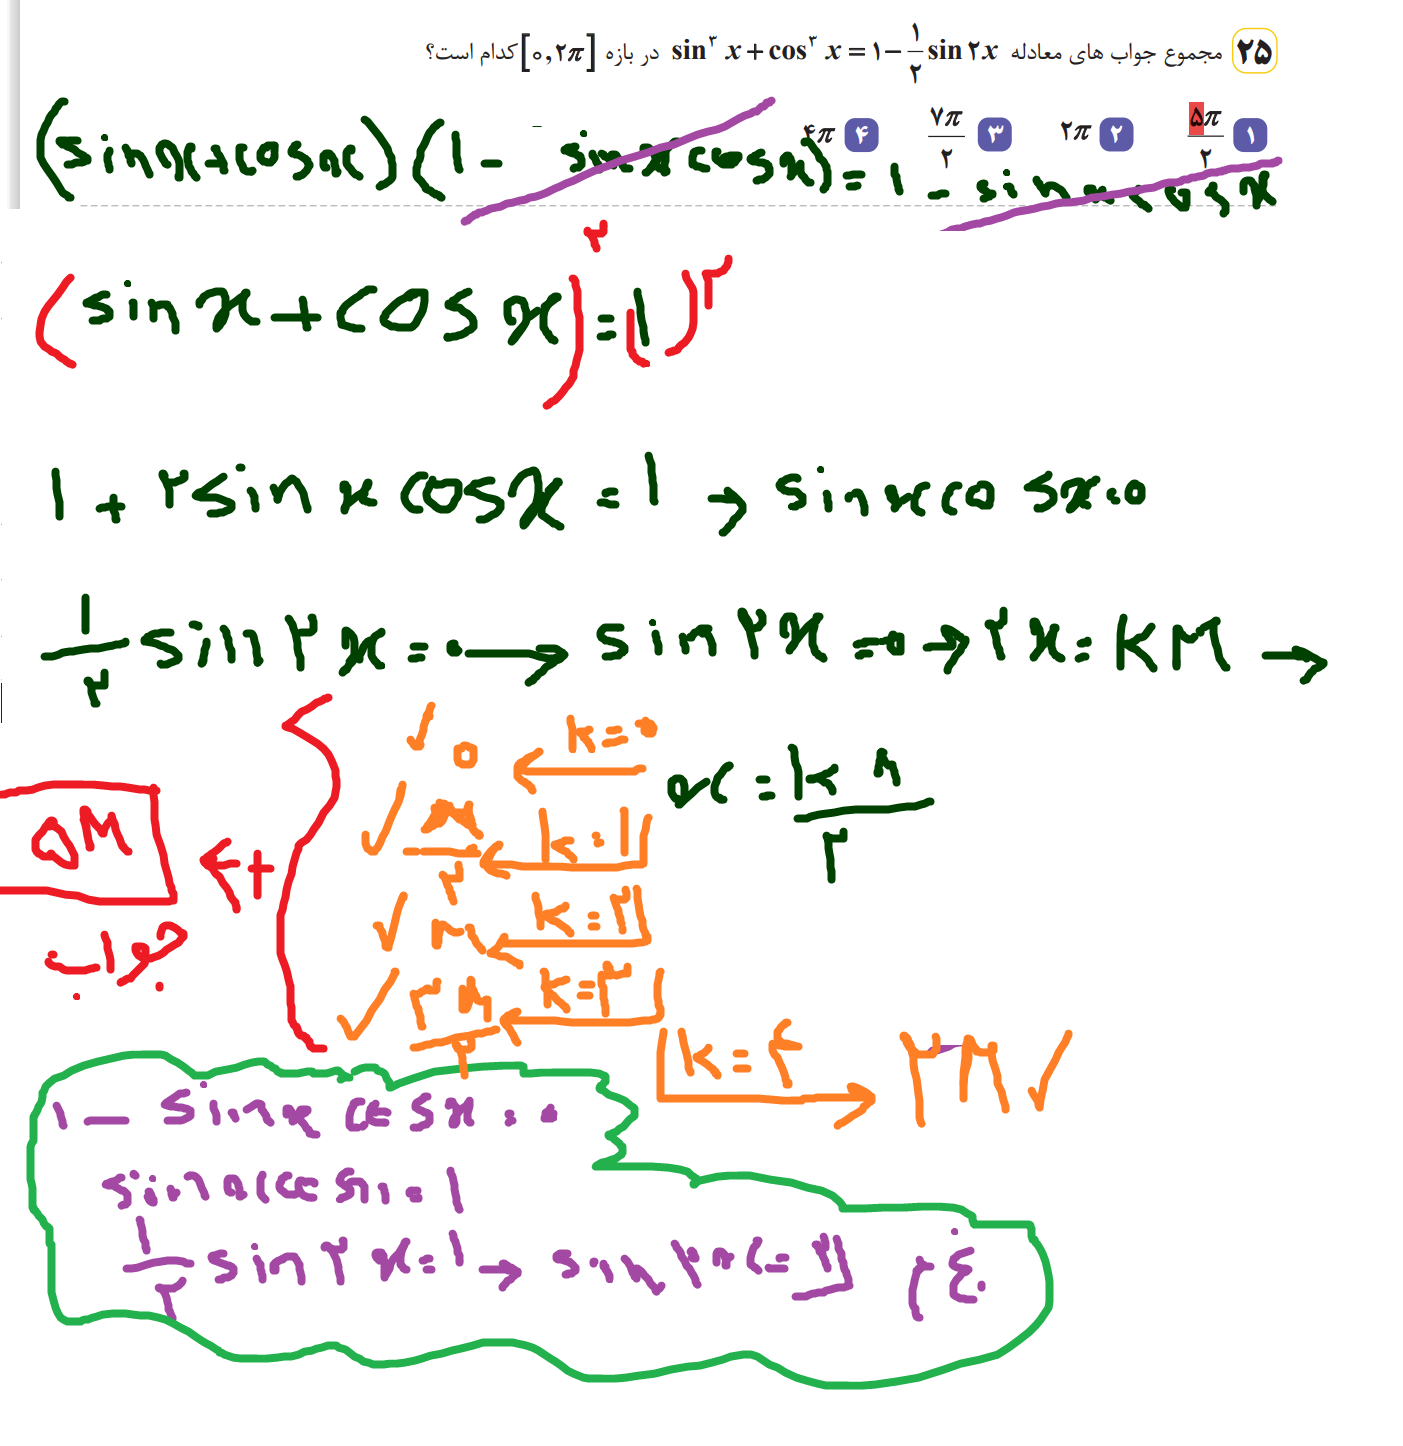 ۲۵ مجموع جواب های معادله sin^۳ x + cos^۳ x = ۱ - ۱/۲ sin ۲x در بازه [۰,۲π] کدام است؟
۱ ۵π/۲ ۲ ۲π ۳ ۷π/۲ ۴ ۴π
(sinx+cosx)(1 - sinx cosx) = 1 - sinx cosx
(sinx+cosx)^۲ = (1)^۲
1 + ۲sinx cosx = 1 → sinx cosx = 0
1/۲ sin ۲x = 0 → sin ۲x = 0 → ۲x = kπ →
x = kπ/۲
✓ 0 ← k=0
✓ π/۲ ← k=1
✓ π ← k=۲
✓ ۳π/۲ ← k=۳
k=۴ → ۲π ✓
+ → ۵π
جواب
1 - sinx cosx = 0
sinx cosx = 1
1/۲ sin ۲x = 1 → sin ۲x = ۲